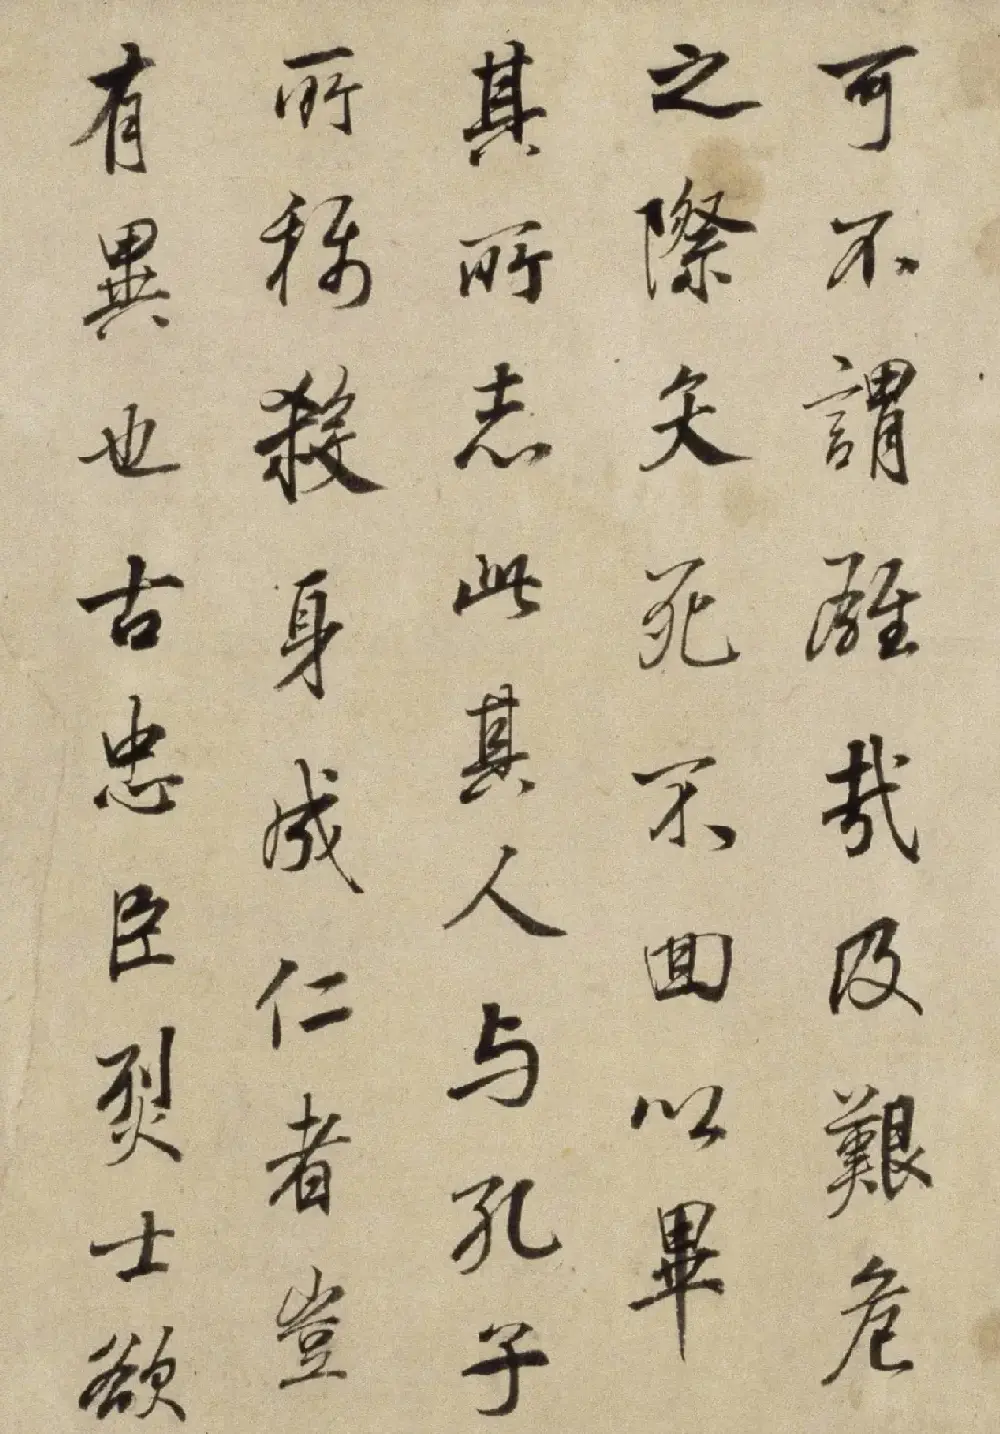 可不謂難哉及艱危
之際矢死不回以畢
其所志此其人与孔子
所稱殺身成仁者豈
有異也古忠臣烈士欲